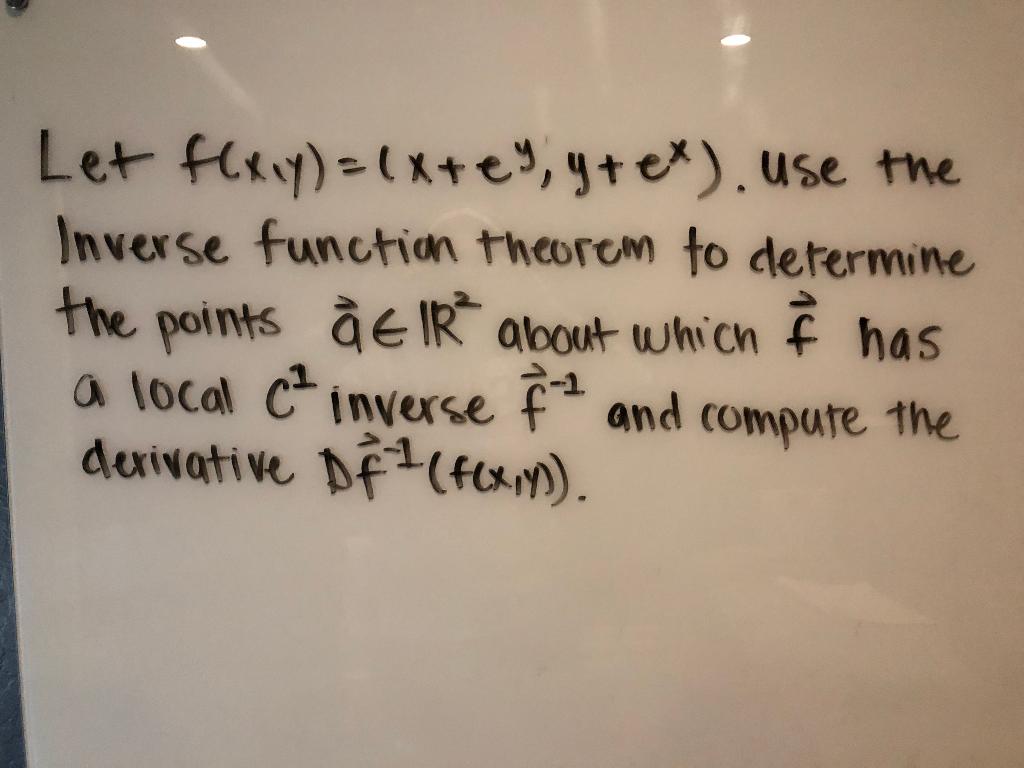 Let f(x,y)=(x+e^y, y+e^x). use the
Inverse function theorem to determine
the points a⃗ ∈ ℝ² about which f⃗ has
a local C¹ inverse f⃗⁻¹ and compute the
derivative Df⃗⁻¹(f(x,y)).